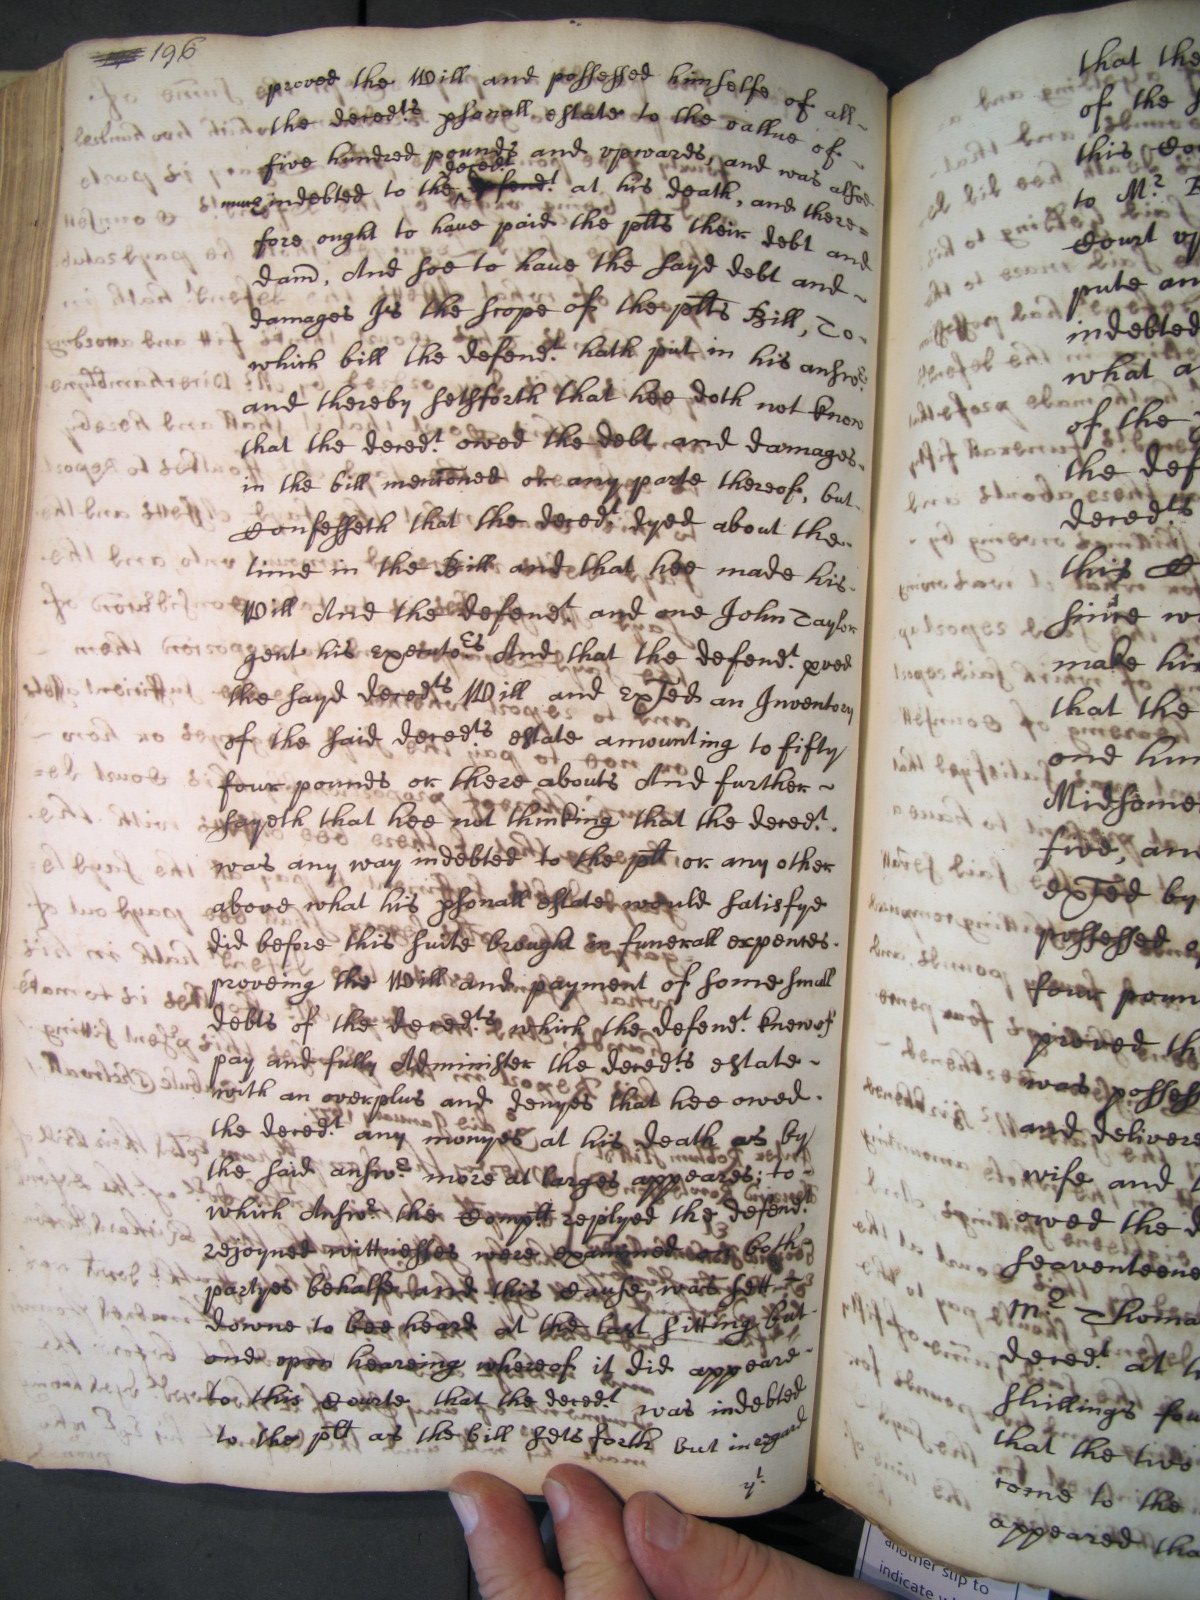 196
proved the Will and possessed himselfe of all
the deced:ts psonall estate to the vallue of
five hundred pounds and vpwards, and was alsoe
deced:t
much indebted to the at his death, and there=
fore ought to have paid the plts their debt and
dam, And soe to have the sayd debt and
damages Is the scope of the plts Bill, To
which bill the defend:t hath put in his answr:
and thereby sethforth that hee doth not know
that the deced:t owed the debt and damages
in the bill menconed or any parte thereof, but
Confesseth that the deced:t dyed about the
time in the Bill and that hee made his
Will And the defend:t and one John Taylor
gent his executo:rs And that the defend:t pved
the sayd deced:ts Will and exTed an Inventory
of the said deced:ts estate amounting to fifty
four pounds or there abouts And further
sayeth that hee not thinking that the deced:t
was any way indebted to the plt or any other
above what his psonall estate would satisfye
did before this suite brought in funerall expences
proveing the Will and payment of some small
debts of the deced:ts which the defend:t knew of
pay and fully Administer the deced:ts estate
with an overplus and denyes that hee owed
the deced:t any monyes at his death as by
the said answ:r more at larges appeares; to
which Answ:r the Complt replyed the defend:t
rejoyned wittnesses were examined on both
partyes behalfe and this Cause was sett
downe to bee heard at the last sitting but
one vpon heareing whereof it did appeare
to this Courte that the deced:t was indebted
to the plt as the bill sets forth but in regard
y:t
that the
of the
this Co
to M:r B
Court vp
pute an
indebted
what a
of the
the def
deced:ts
this
since w
make him
that the
one hun
Midsome
five, and
exTed by
possessed
four poun
proved th
was possess
and delivere
wife and
owed the d
seaventeene
m:r Thoma
deced:t at h
shillings fou
that the two
come to the
appeared tha
another slip to
indicate w